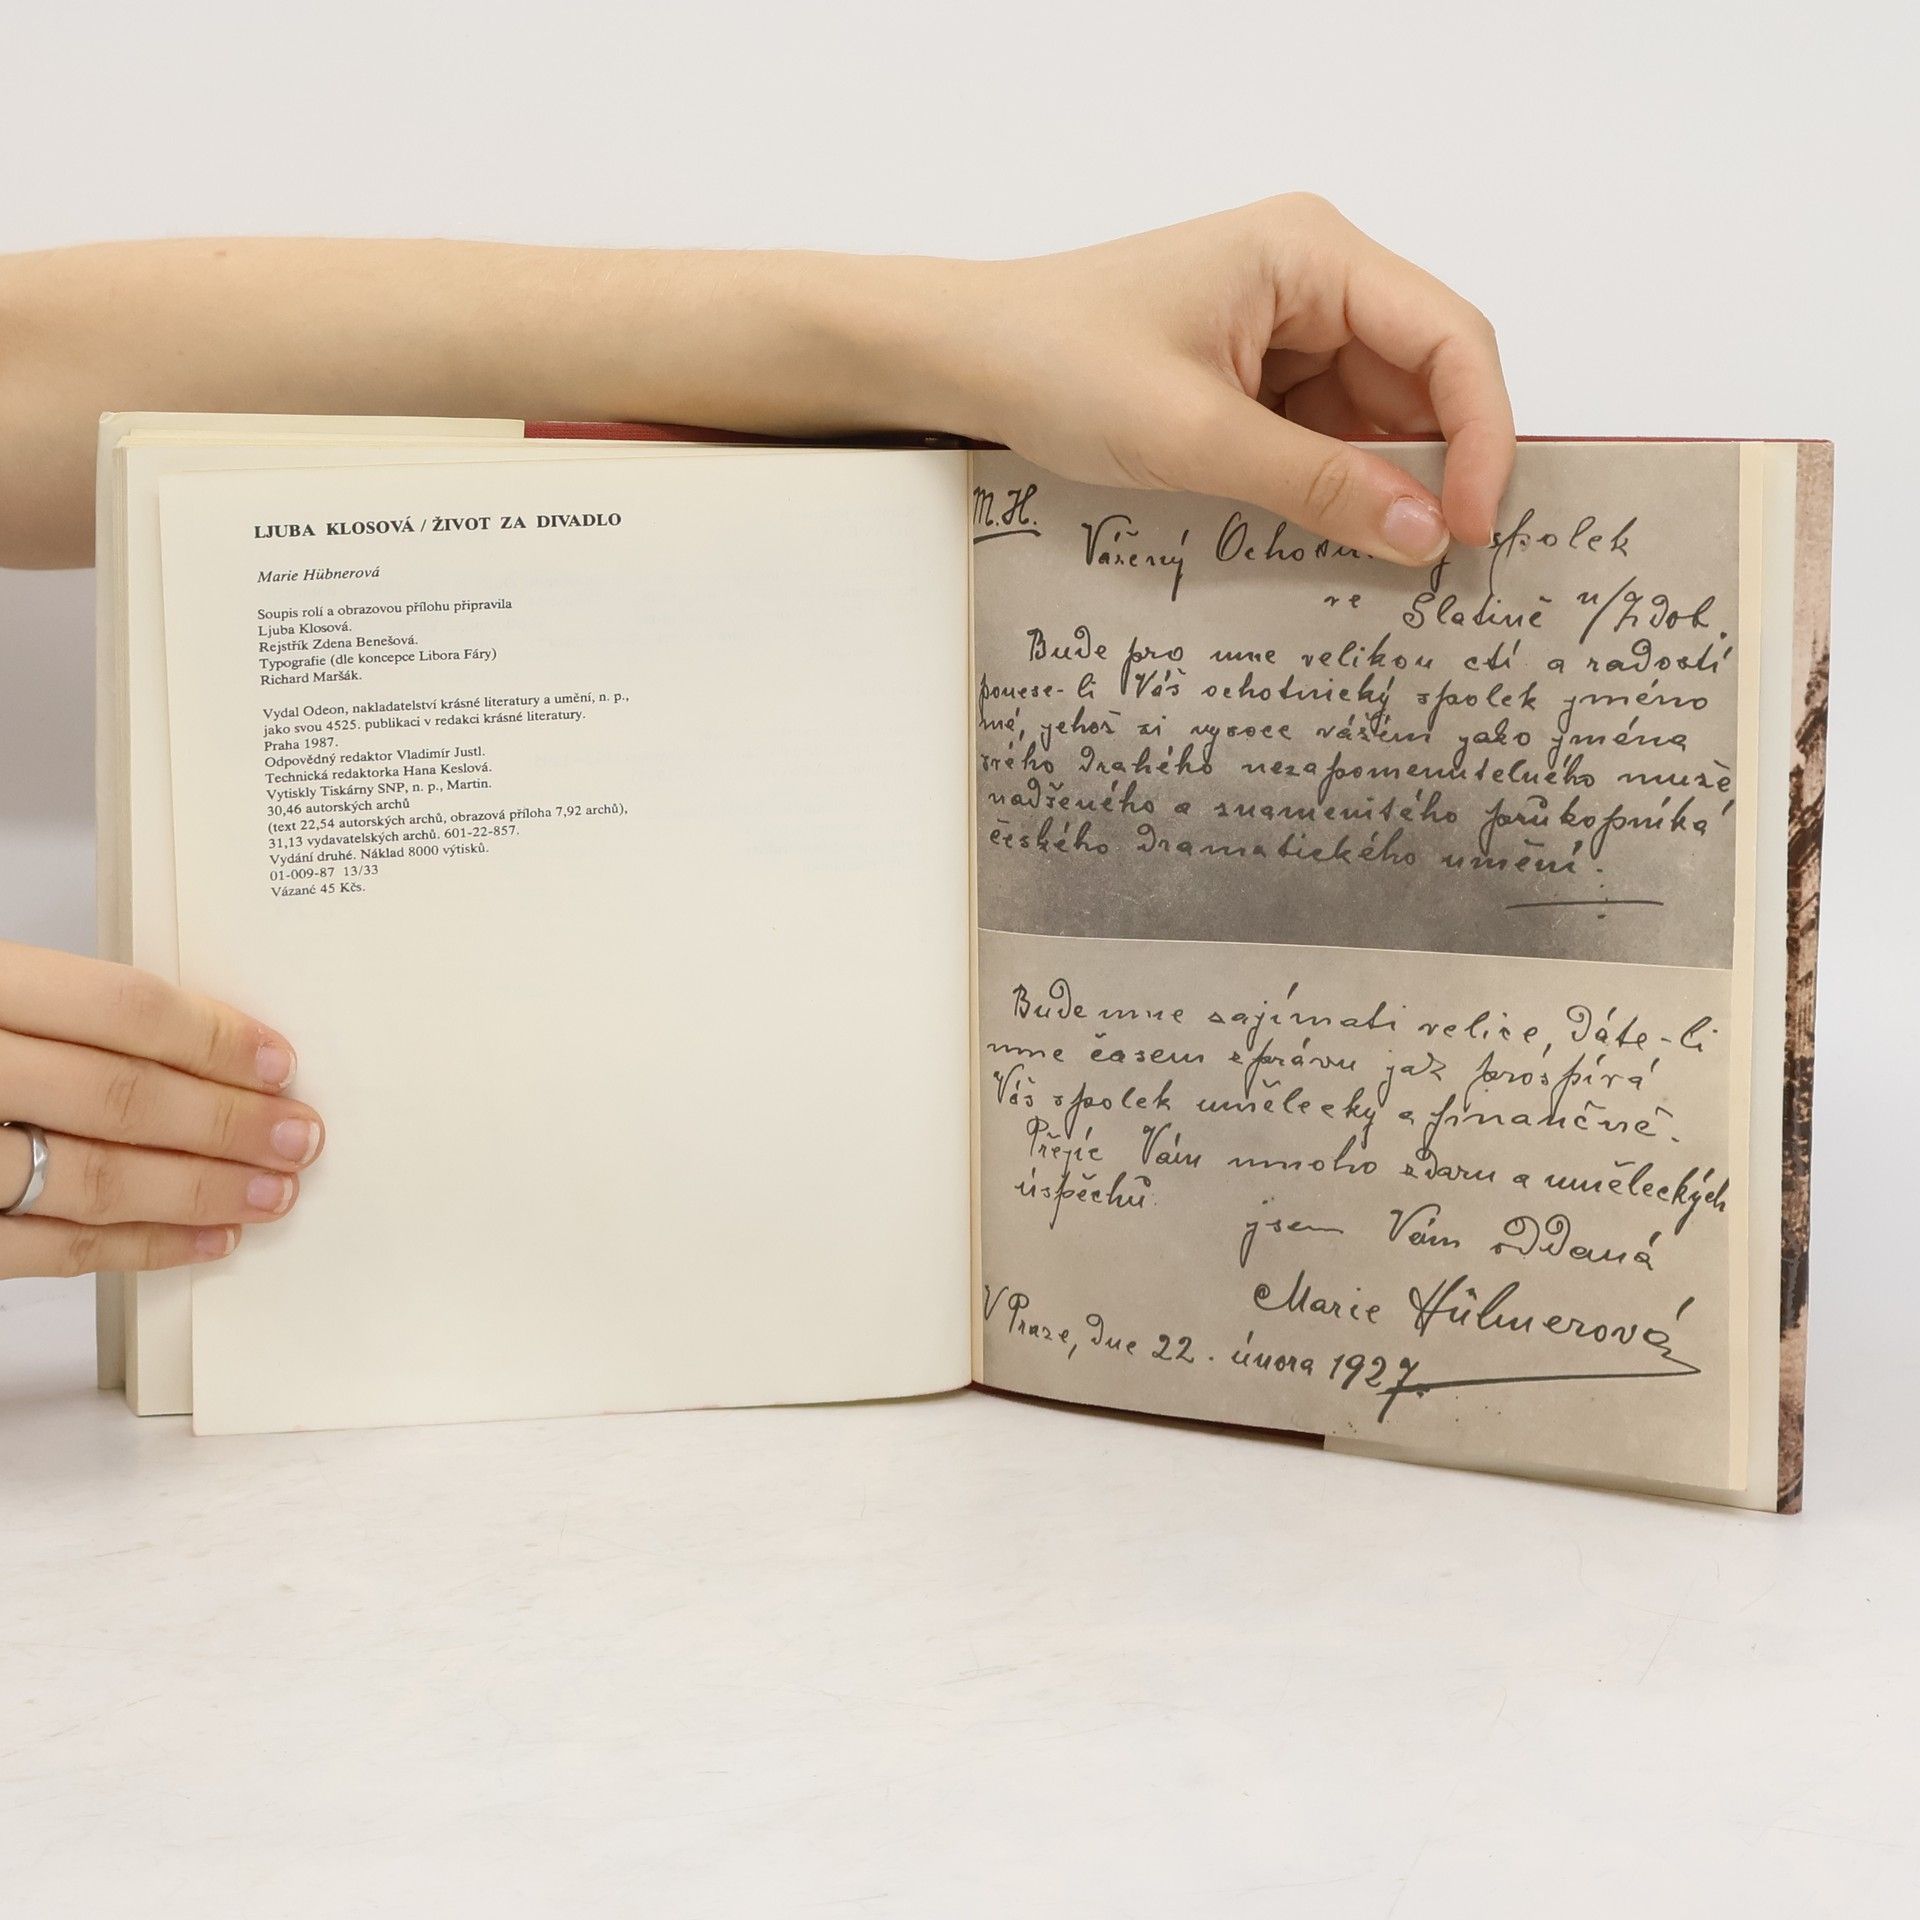 LJUBA KLOSOVÁ / ŽIVOT ZA DIVADLO
Marie Hübnerová
Soupis rolí a obrazovou přílohu připravila
Ljuba Klosová.
Rejstřík Zdena Benešová.
Typografie (dle koncepce Libora Fáry)
Richard Maršák.
Vydal Odeon, nakladatelství krásné literatury a umění, n. p.,
jako svou 4525. publikaci v redakci krásné literatury.
Praha 1987.
Odpovědný redaktor Vladimír Justl.
Technická redaktorka Hana Keslová.
Vytiskly Tiskárny SNP, n. p., Martin.
30,46 autorských archů
(text 22,54 autorských archů, obrazová příloha 7,92 archů),
31,13 vydavatelských archů. 601-22-857.
Vydání druhé. Náklad 8000 výtisků.
01-009-87 13/33
Vázané 45 Kčs.
M. H.
Vážený spolek
ve Slatině n/Zdob.
Bude pro mne velikou ctí a radostí
ponese-li Váš ochotnický spolek jméno
mé, jehož si vysoce vážím jako jména
svého drahého nezapomenutelného muže
nadšeného a znamenitého průkopníka
českého dramatického umění.
Bude mne zajímati velice, dáte-li
mne časem zprávu jak prospívá
Váš spolek umělecky a finančně.
Přejíc Vám mnoho zdaru a uměleckých
úspěchů
jsem Vám oddaná
Marie Hübnerová
V Praze, dne 22. února 1927.